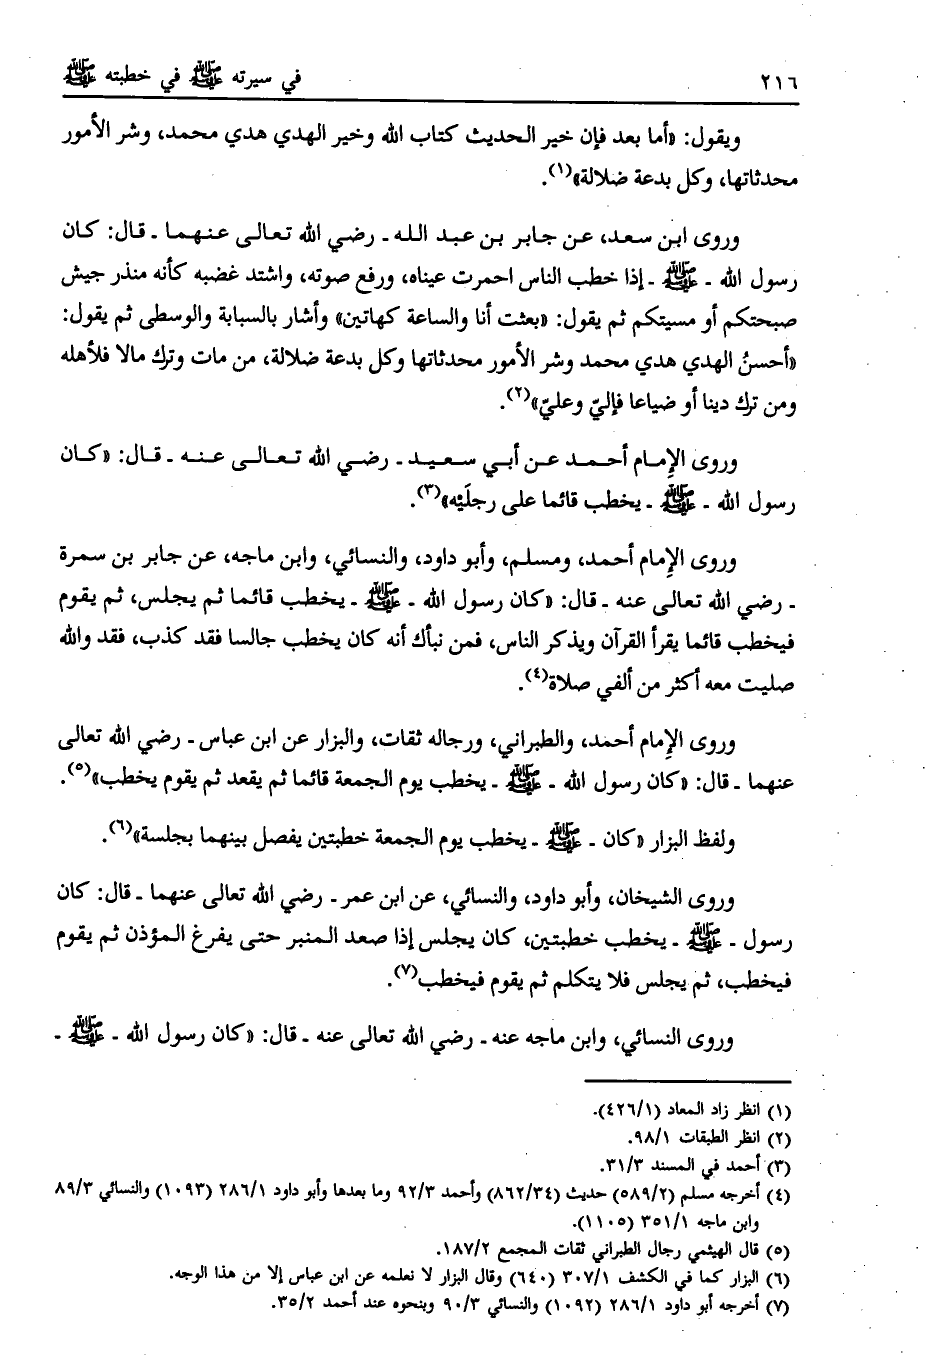 ٢١٦ في سيرته ﷺ في خطبته ﷺ
ويقول: «أما بعد فإن خير الحديث كتاب الله وخير الهدي هدي محمد، وشر الأمور
محدثاتها، وكل بدعة ضلالة»(١).
وروى ابن سعد، عن جابر بن عبد الله ـ رضي الله تعالى عنهما ـ قال: كان
رسول الله ـ ﷺ ـ إذا خطب الناس احمرت عيناه، ورفع صوته، واشتد غضبه كأنه منذر جيش
صبحتكم أو مسيتكم ثم يقول: «بعثت أنا والساعة كهاتين» وأشار بالسبابة والوسطى ثم يقول:
«أحسنُ الهدي هدي محمد وشر الأمور محدثاتها وكل بدعة ضلالة، من مات وترك مالا فلأهله
ومن ترك دينا أو ضياعا فإليّ وعليّ»(٢).
وروى الإِمام أحمد عن أبي سعيد ـ رضي الله تعالى عنه ـ قال: «كان
رسول الله ـ ﷺ ـ يخطب قائما على رجلَيْه»(٣).
وروى الإِمام أحمد، ومسلم، وأبو داود، والنسائي، وابن ماجه، عن جابر بن سمرة
ـ رضي الله تعالى عنه ـ قال: «كان رسول الله ـ ﷺ ـ يخطب قائما ثم يجلس، ثم يقوم
فيخطب قائما يقرأ القرآن ويذكر الناس، فمن نبأك أنه كان يخطب جالسا فقد كذب، فقد والله
صليت معه أكثر من ألفي صلاة(٤).
وروى الإِمام أحمد، والطبراني، ورجاله ثقات، والبزار عن ابن عباس ـ رضي الله تعالى
عنهما ـ قال: «كان رسول الله ـ ﷺ ـ يخطب يوم الجمعة قائما ثم يقعد ثم يقوم يخطب»(٥).
ولفظ البزار «كان ـ ﷺ ـ يخطب يوم الجمعة خطبتين يفصل بينهما بجلسة»(٦).
وروى الشيخان، وأبو داود، والنسائي، عن ابن عمر ـ رضي الله تعالى عنهما ـ قال: كان
رسول ـ ﷺ ـ يخطب خطبتين، كان يجلس إذا صعد المنبر حتى يفرغ المؤذن ثم يقوم
فيخطب، ثم يجلس فلا يتكلم ثم يقوم فيخطب(٧).
وروى النسائي، وابن ماجه عنه ـ رضي الله تعالى عنه ـ قال: «كان رسول الله ـ ﷺ ـ
(١) انظر زاد المعاد (٤٢٦/١).
(٢) انظر الطبقات ٩٨/١.
(٣) أحمد في المسند ٣١/٣.
(٤) أخرجه مسلم (٥٨٩/٢) حديث (٨٦٢/٣٤) وأحمد ٩٢/٣ وما بعدها وأبو داود ٢٨٦/١ (١٠٩٣) والنسائي ٨٩/٣
وابن ماجه ٣٥١/١ (١١٠٥).
(٥) قال الهيثمي رجال الطبراني ثقات المجمع ١٨٧/٢.
(٦) البزار كما في الكشف ٣٠٧/١ (٦٤٠) وقال البزار لا نعلمه عن ابن عباس إلا من هذا الوجه.
(٧) أخرجه أبو داود ٢٨٦/١ (١٠٩٢) والنسائي ٩٠/٣ وبنحوه عند أحمد ٣٥/٢.